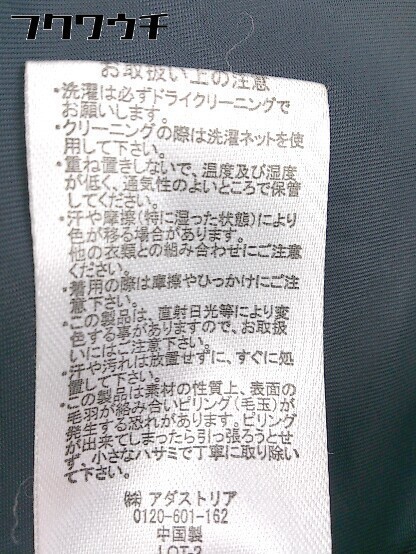 フクワウチ
お取扱い上の注意
・洗濯は必ずドライクリーニングで
お願いします。
・クリーニングの際は洗濯ネットを使
用して下さい。
・重ね置きしないで、温度及び湿度
が低く、通気性のよいところで保管
してください。
・汗や摩擦(特に湿った状態)により
色が移る場合があります。
他の衣類との組み合わせにご注意
ください。
・着用の際は摩擦やひっかけにご注
意下さい。
・この製品は、直射日光等により変
色する事がありますので、お取扱
いにはご注意下さい。
・汗や汚れは放置せずに、すぐに処
置して下さい。
・この製品は素材の性質上、表面の
毛羽が絡み合いピリング(毛玉)が
発生する恐れがあります。ピリング
が出来てしまったら引っ張ろうとせ
ず、小さなハサミで丁寧に取り除い
て下さい。
㈱ アダストリア
0120-601-162
中国製
LOT-2